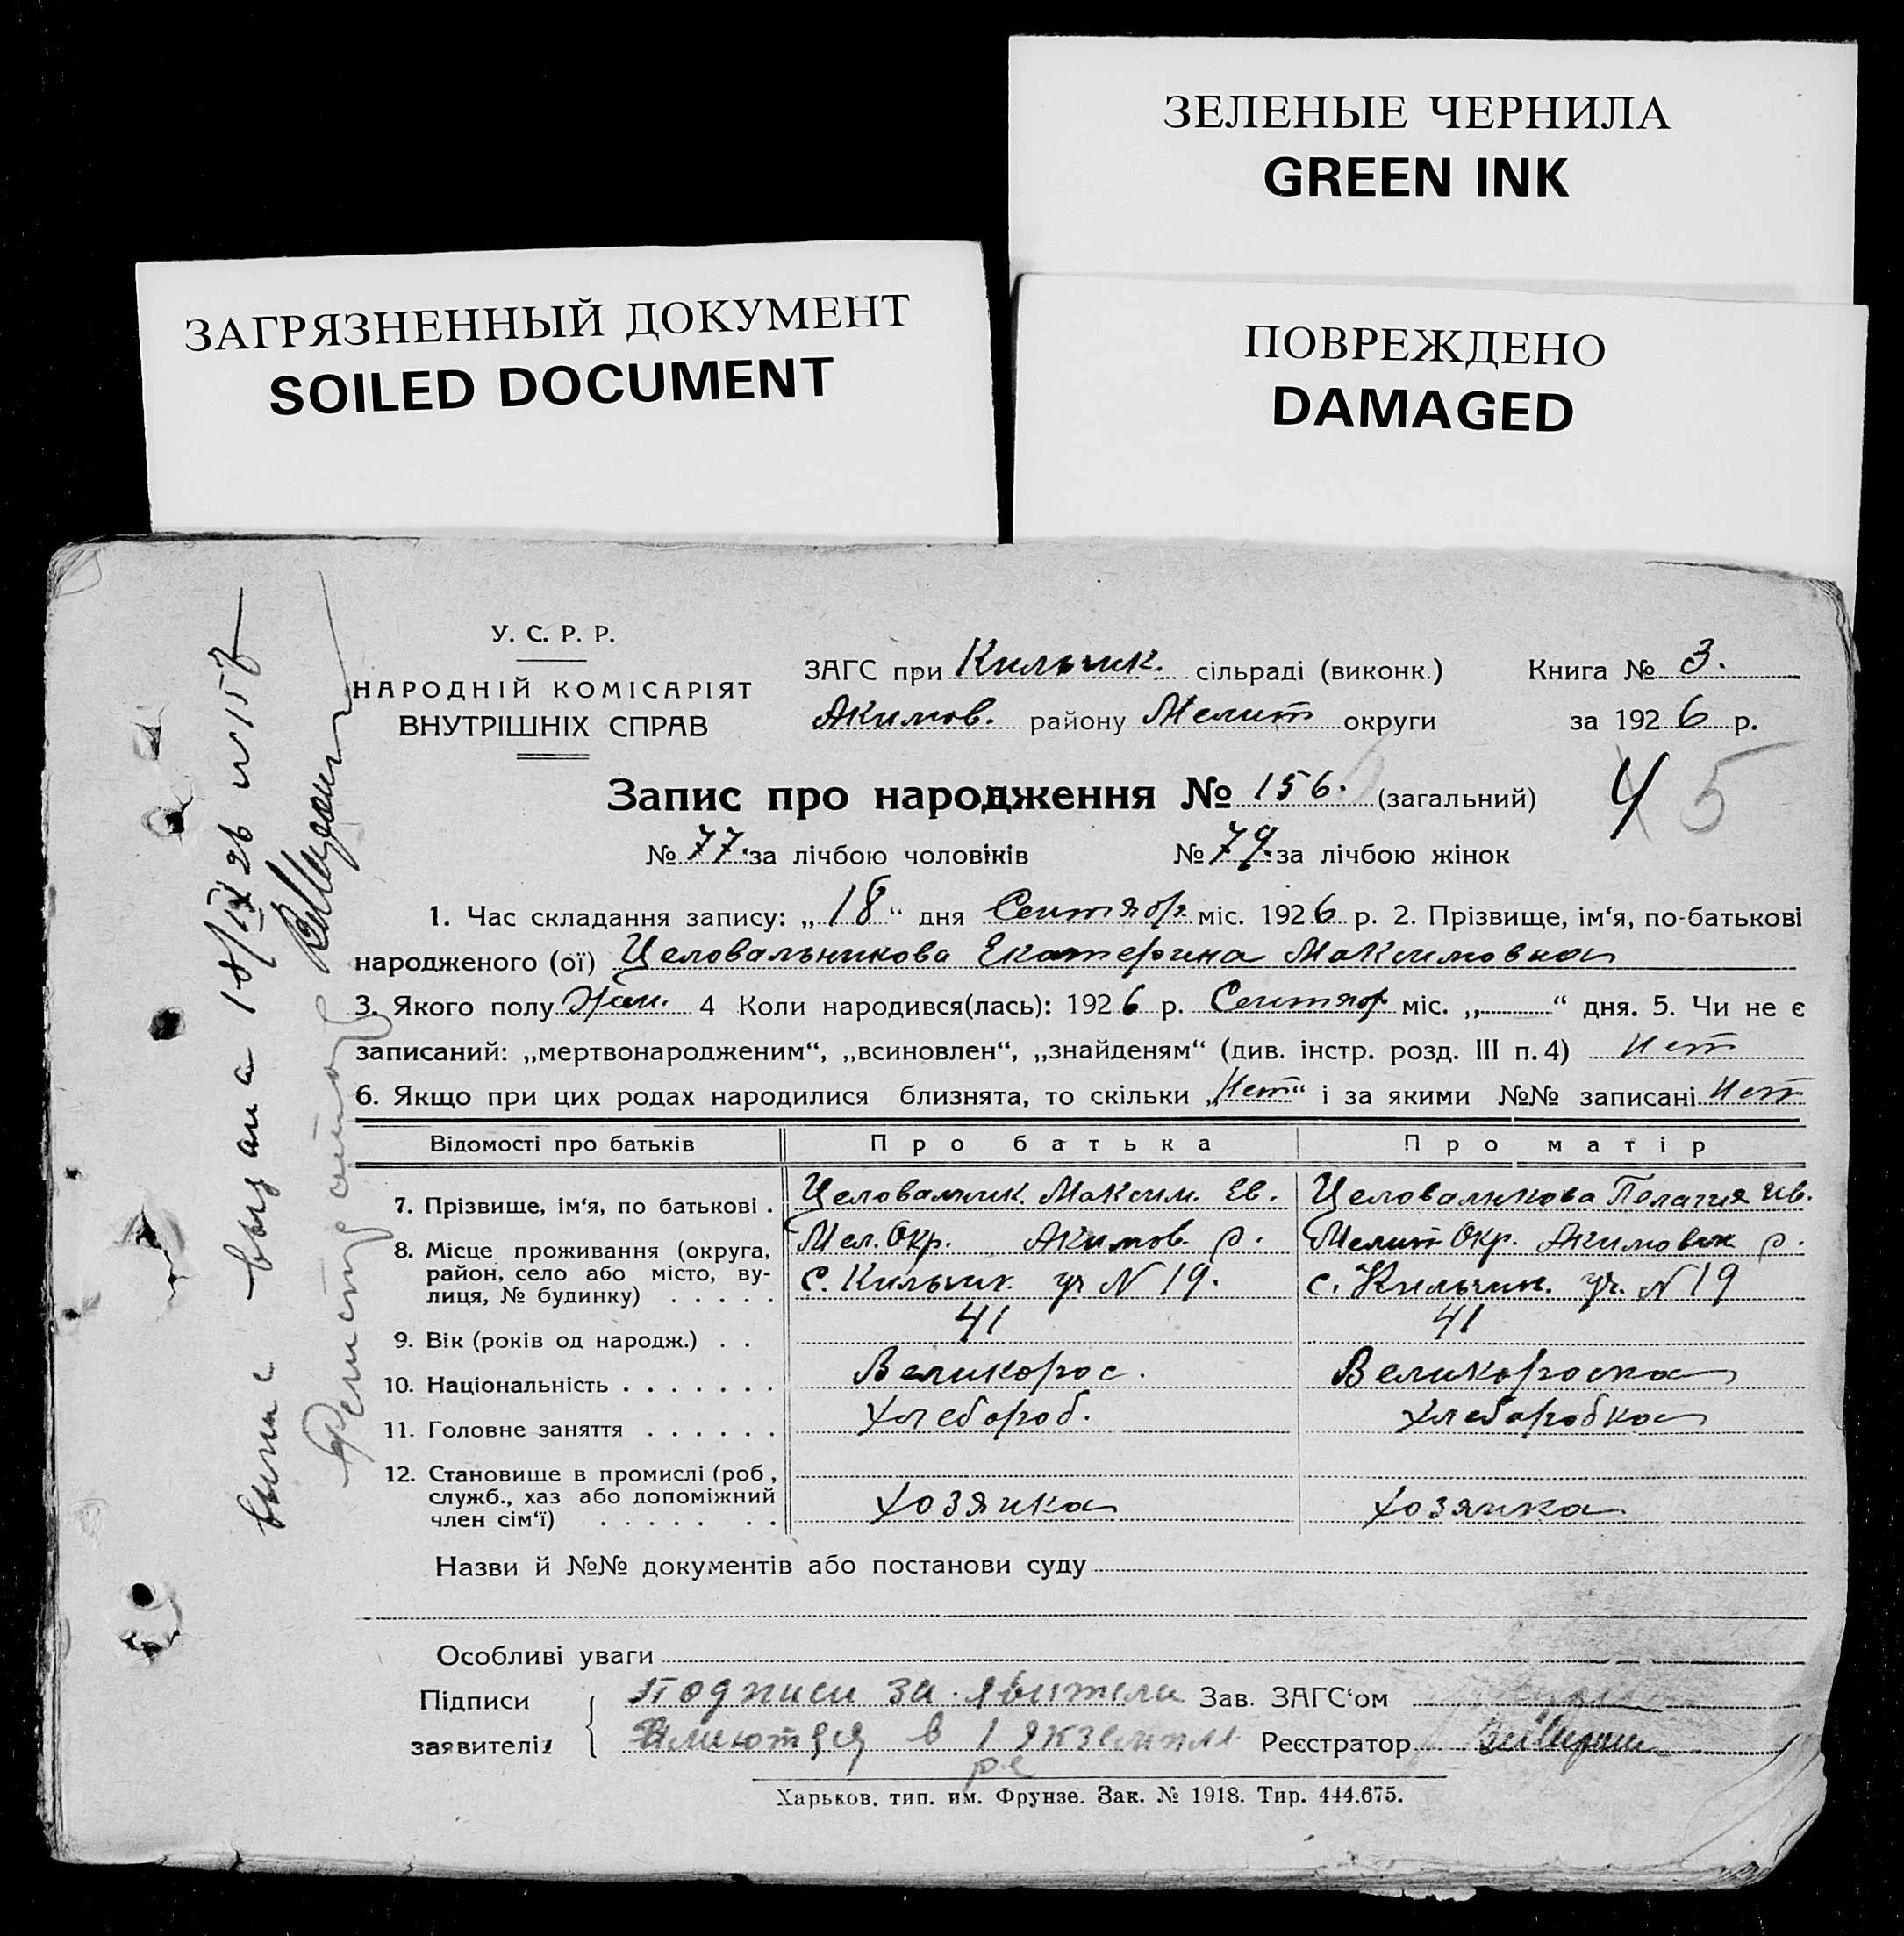 ЗЕЛЕНЫЕ ЧЕРНИЛА
GREEN INK
ЗАГРЯЗНЕННЫЙ ДОКУМЕНТ
SOILED DOCUMENT
ПОВРЕЖДЕНО
DAMAGED
У. С. Р. Р.
НАРОДНІЙ КОМІСАРІЯТ
ВНУТРІШНІХ СПРАВ
ЗАГС при Кильчик. сільраді (виконк.)
Акимов. району Мелит округи
Книга № 3.
за 1926 р.
Запис про народження № 156. (загальний)
4 5
№ 77. за лічбою чоловіків № 79. за лічбою жінок
1. Час складання запису: „18“ дня Сентябр. міс. 1926 р. 2. Прізвище, ім‘я, по-батькові
народженого (ої) Целовальникова Екатерина Максимовна
3. Якого полу Жен. 4 Коли народився(лась): 1926 р. Сентябр міс. „ “ дня. 5. Чи не є
записаний: „мертвонародженим“, „всиновлен“, „знайденям“ (див. інстр. розд. III п. 4) Нет
6. Якщо при цих родах народилися близнята, то скільки „Нет“ і за якими №№ записані Нет
Відомості про батьків Про батька Про матір
7. Прізвище, ім‘я, по батькові . Целовальник. Максим. Ев. Целовалникова Пелагия Ив.
8. Місце проживання (округа, Мел. Окр. Акимов. р. Мелит Окр. Акимовск р.
район, село або місто, ву-
лиця, № будинку) . . . . . с. Кильчик. уч N 19. с. Кильчик. уч. N 19
9. Вік (років од народж.) . . 41 41
10. Національність . . . . . . . Великорос. Великороска
11. Головне заняття . . . . . . Хлебороб. Хлеборобка
12. Становище в промислі (роб,
служб., хаз або допоміжний
член сім‘ї) . . . . . . . Хозяика хозяика
Назви й №№ документів або постанови суду
Особливі уваги
Підписи
заявителів
Подписи за явители
Имиются в 1 экземпля
ре
Зав. ЗАГС‘ом
Реєстратор
Харьков, тип. им. Фрунзе. Зак. № 1918. Тир. 444.675.
выпис выдана 18/IX 26 N 157